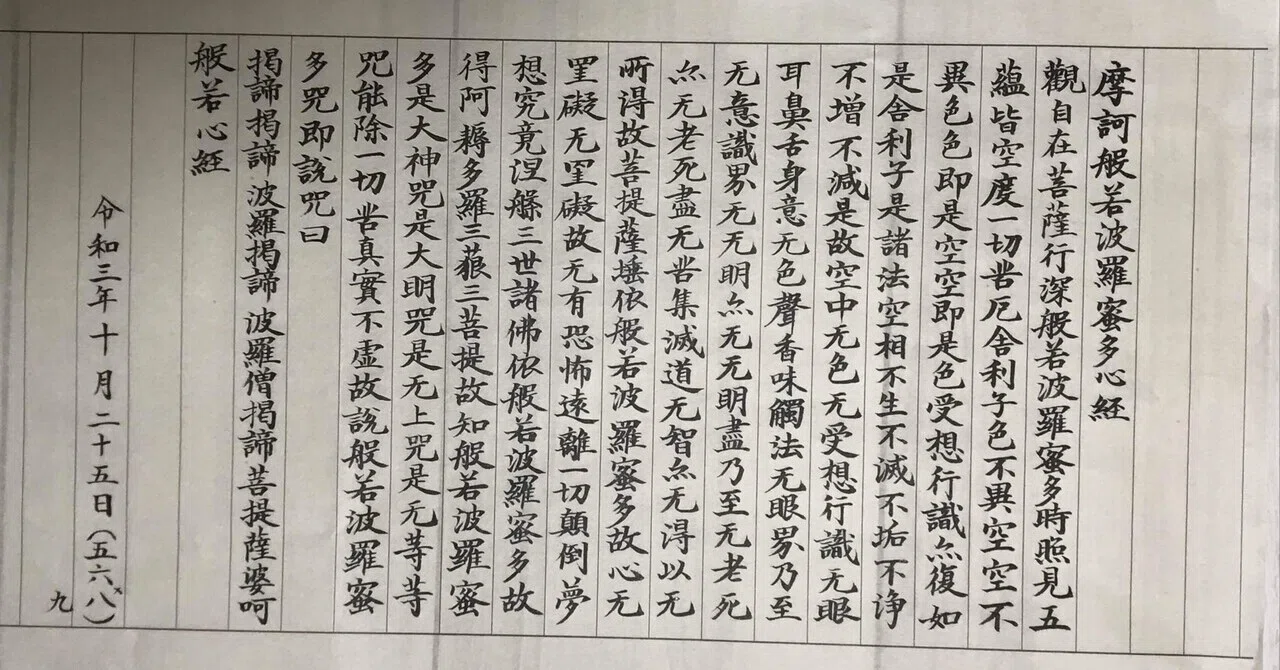 摩訶般若波羅蜜多心経
觀自在菩薩行深般若波羅蜜多時照見五
蘊皆空度一切苦厄舎利子色不異空空不
異色色即是空空即是色受想行識亦復如
是舎利子是諸法空相不生不滅不垢不浄
不增不減是故空中无色无受想行識无眼
耳鼻舌身意无色聲香味觸法无眼界乃至
无意識界无无明亦无无明盡乃至无老死
亦无老死盡无苦集滅道无智亦无得以无
所得故菩提薩埵依般若波羅蜜多故心无
罣礙无罣礙故无有恐怖遠離一切顛倒夢
想究竟涅槃三世諸佛依般若波羅蜜多故
得阿耨多羅三藐三菩提故知般若波羅蜜
多是大神咒是大明咒是无上咒是无等等
咒能除一切苦真實不虛故說般若波羅蜜
多咒即說咒曰
揭諦揭諦波羅揭諦波羅僧揭諦菩提薩婆呵
般若心経
令和三年十月二十五日(五六八)
九